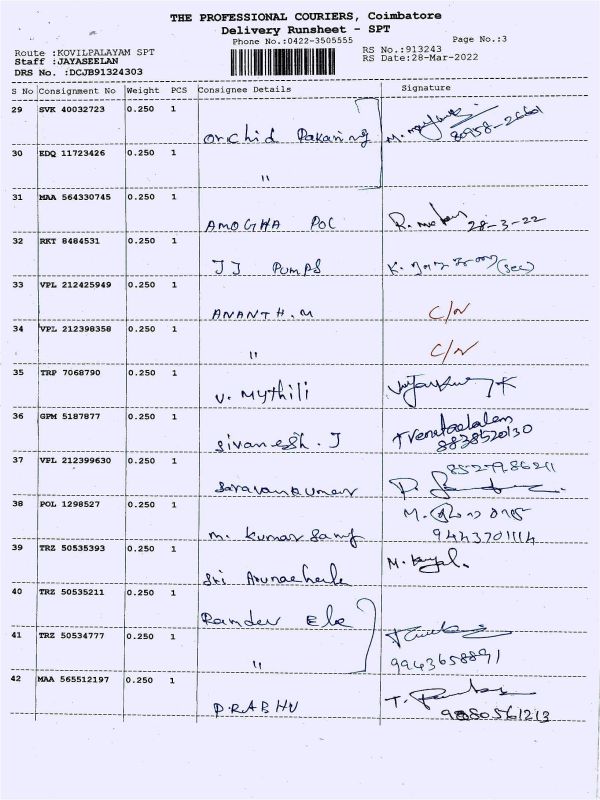 THE PROFESSIONAL COURIERS, Coimbatore
Delivery Runsheet - SPT
Phone No.:0422-3505555 Page No.:3
Route :KOVILPALAYAM SPT RS No.:913243
Staff :JAYASEELAN RS Date:28-Mar-2022
DRS No. :DCJB91324303
S No Consignment No Weight PCS Consignee Details Signature
29 SVK 40032723 0.250 1
Orchid
30 EDQ 11723426 0.250 1
"
31 MAA 564330745 0.250 1
AMOGHA POC 28-3-22
32 RKT 8484531 0.250 1
JJ PUMPS K. (Sec)
33 VPL 212425949 0.250 1
ANANTH.M C/N
34 VPL 212398358 0.250 1
" C/N
35 TRP 7068790 0.250 1
V. Mythili
36 GPM 5187877 0.250 1
Sivanesh. J 8838520130
37 VPL 212399630 0.250 1
Saravanakumar
38 POL 1298527 0.250 1
M. Kumar Samy
39 TRZ 50535393 0.250 1
Sri
40 TRZ 50535211 0.250 1
Ramdev Ele
41 TRZ 50534777 0.250 1
" 9943658891
42 MAA 565512197 0.250 1
PRABHU T.